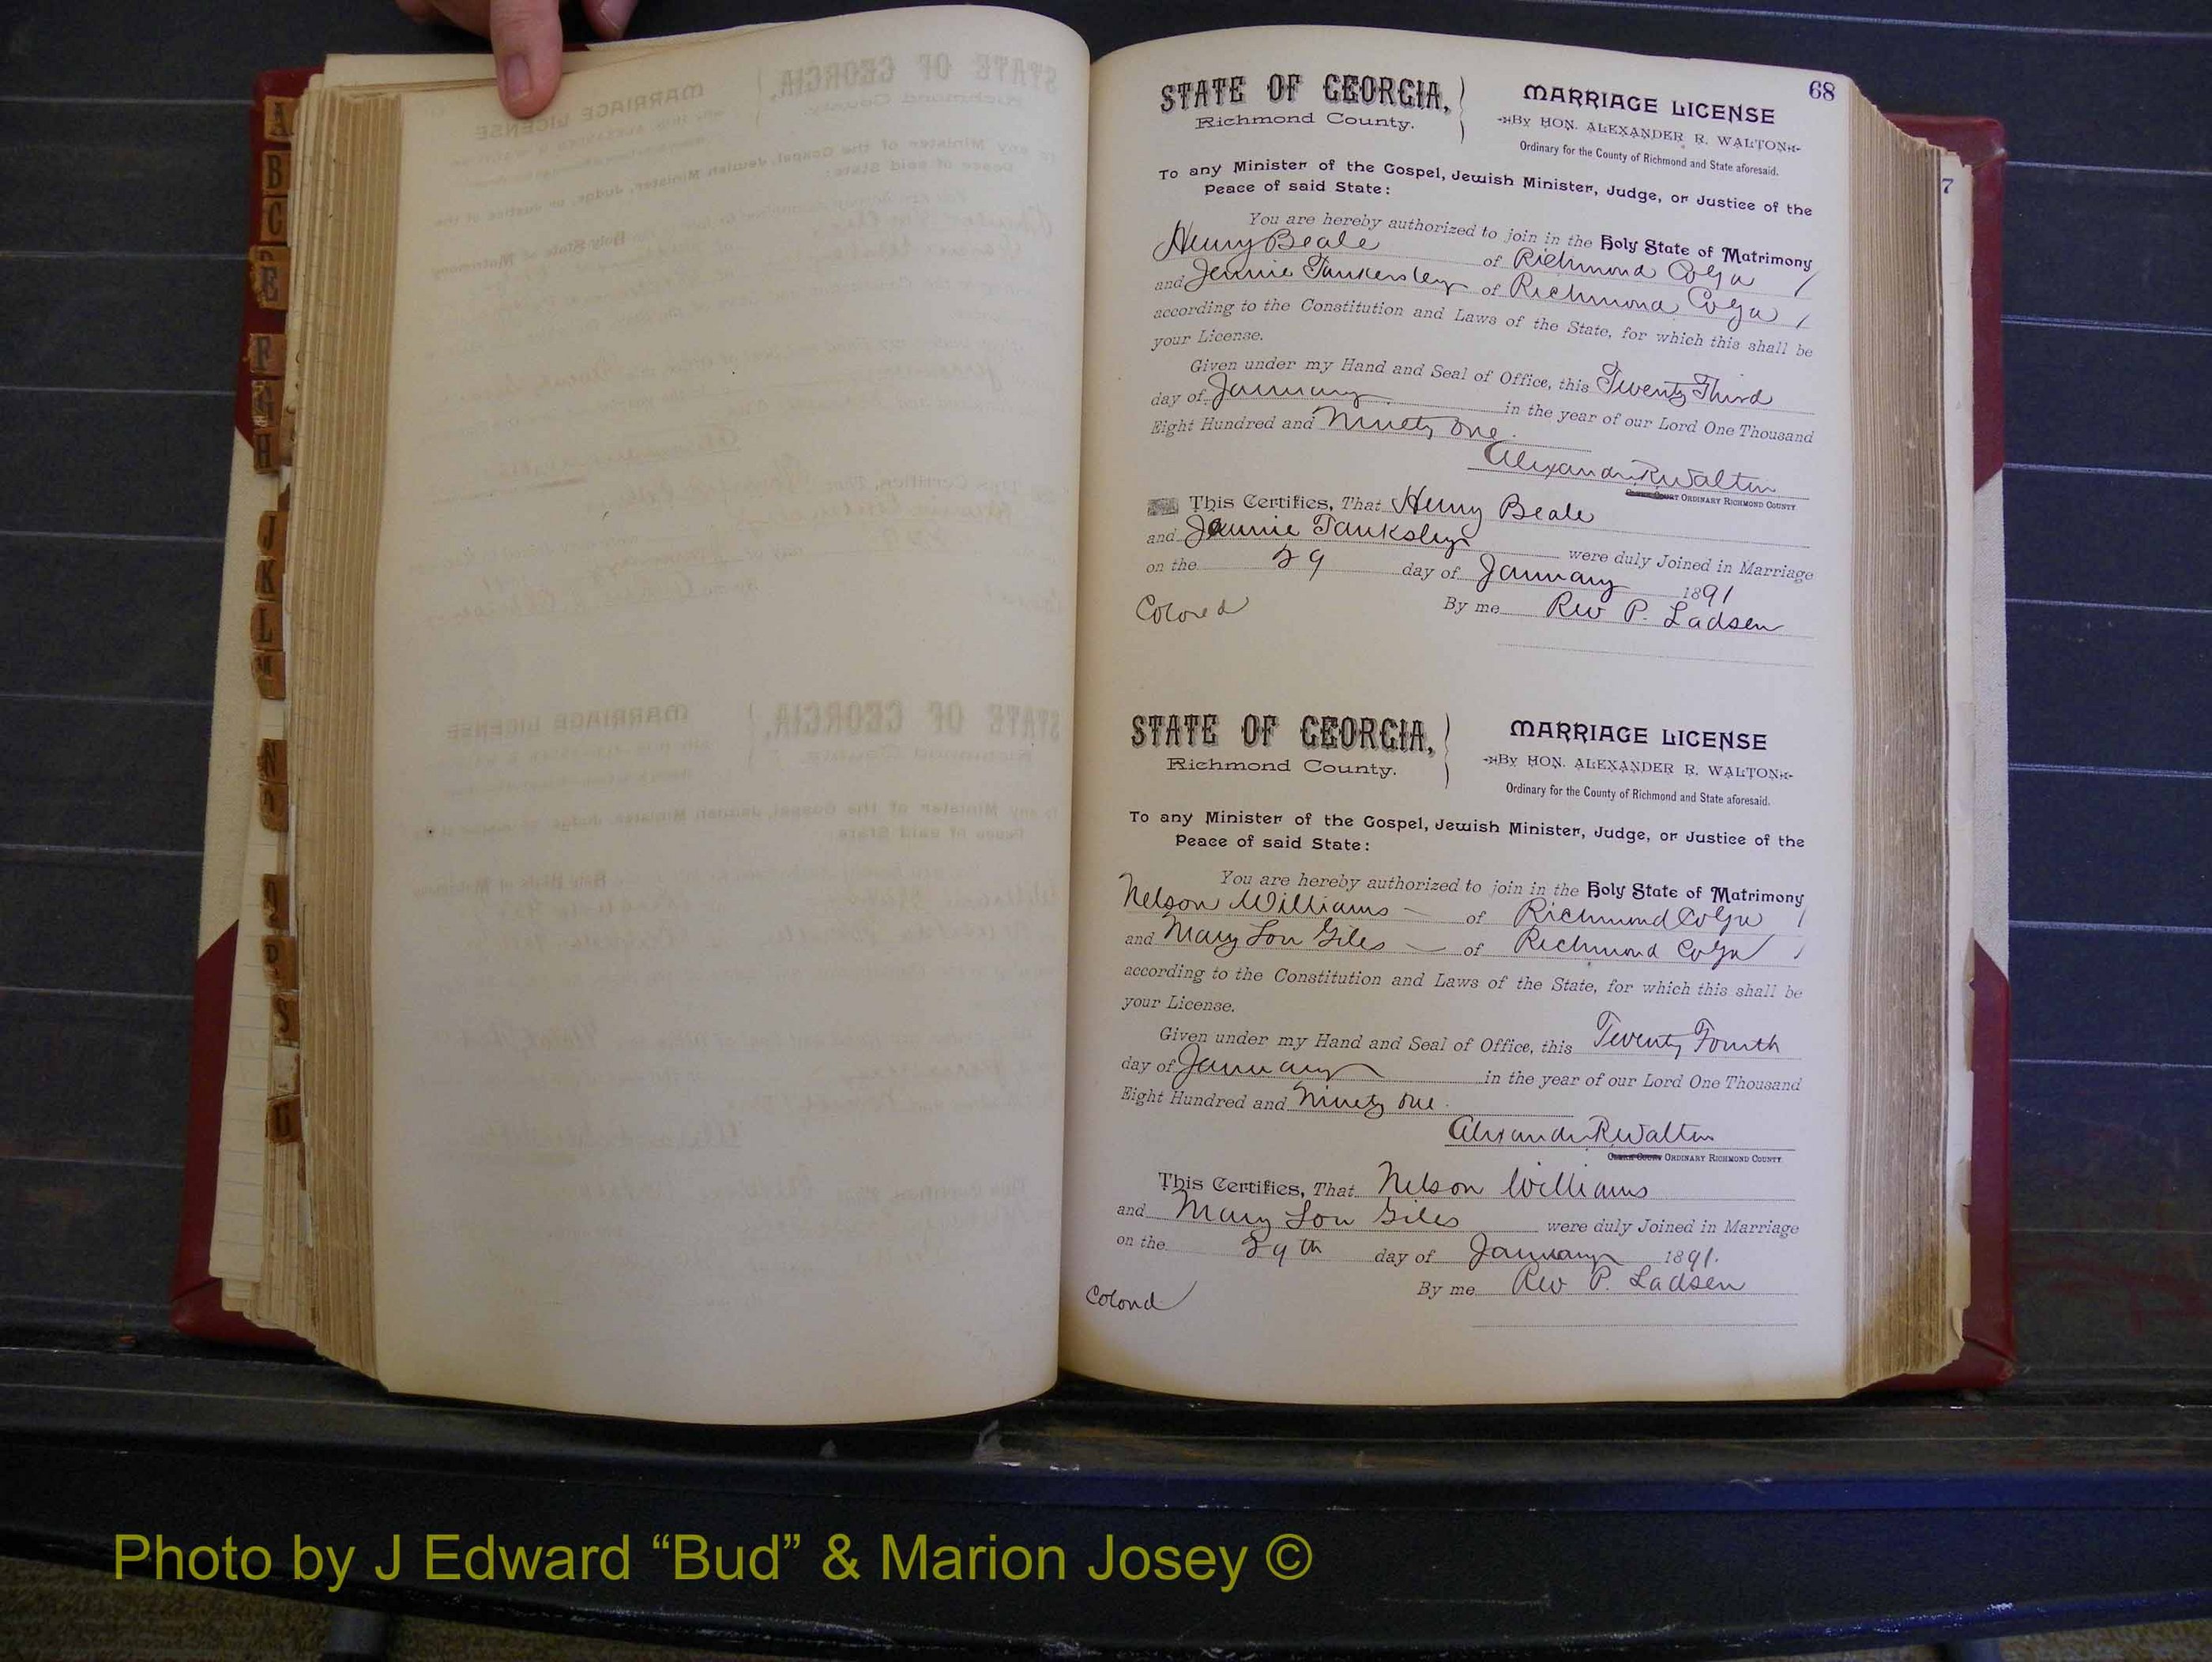 A
B
C
E
F
G
H
J
K
L
M
N
O
P
S
U
68
7
STATE OF GEORGIA,
Richmond County.
MARRIAGE LICENSE
By HON. ALEXANDER R. WALTON
Ordinary for the County of Richmond and State aforesaid.
To any Minister of the Gospel, Jewish Minister, Judge, or Justice of the
Peace of said State:
You are hereby authorized to join in the Holy State of Matrimony
Henry Beale of Richmond Co Ga
and Jennie Tankersley of Richmond Co Ga
according to the Constitution and Laws of the State, for which this shall be
your License.
Given under my Hand and Seal of Office, this Twenty Third
day of January in the year of our Lord One Thousand
Eight Hundred and Ninety One.
Alexander R Walton
CLERK COURT ORDINARY RICHMOND COUNTY.
This Certifies, That Henry Beale
and Jennie Tanksley were duly Joined in Marriage
on the 29 day of January 1891
Colored By me Rev P. Ladsen
STATE OF GEORGIA,
Richmond County.
MARRIAGE LICENSE
By HON. ALEXANDER R. WALTON
Ordinary for the County of Richmond and State aforesaid.
To any Minister of the Gospel, Jewish Minister, Judge, or Justice of the
Peace of said State:
You are hereby authorized to join in the Holy State of Matrimony
Nelson Williams of Richmond Co Ga
and Mary Lou Giles of Richmond Co Ga
according to the Constitution and Laws of the State, for which this shall be
your License.
Given under my Hand and Seal of Office, this Twenty Fourth
day of January in the year of our Lord One Thousand
Eight Hundred and Ninety One.
Alexander R Walton
CLERK COURT ORDINARY RICHMOND COUNTY.
This Certifies, That Nelson Williams
and Mary Lou Giles were duly Joined in Marriage
on the 29th day of January 1891.
By me Rev P. Ladsen
Colord
Photo by J Edward “Bud” & Marion Josey ©